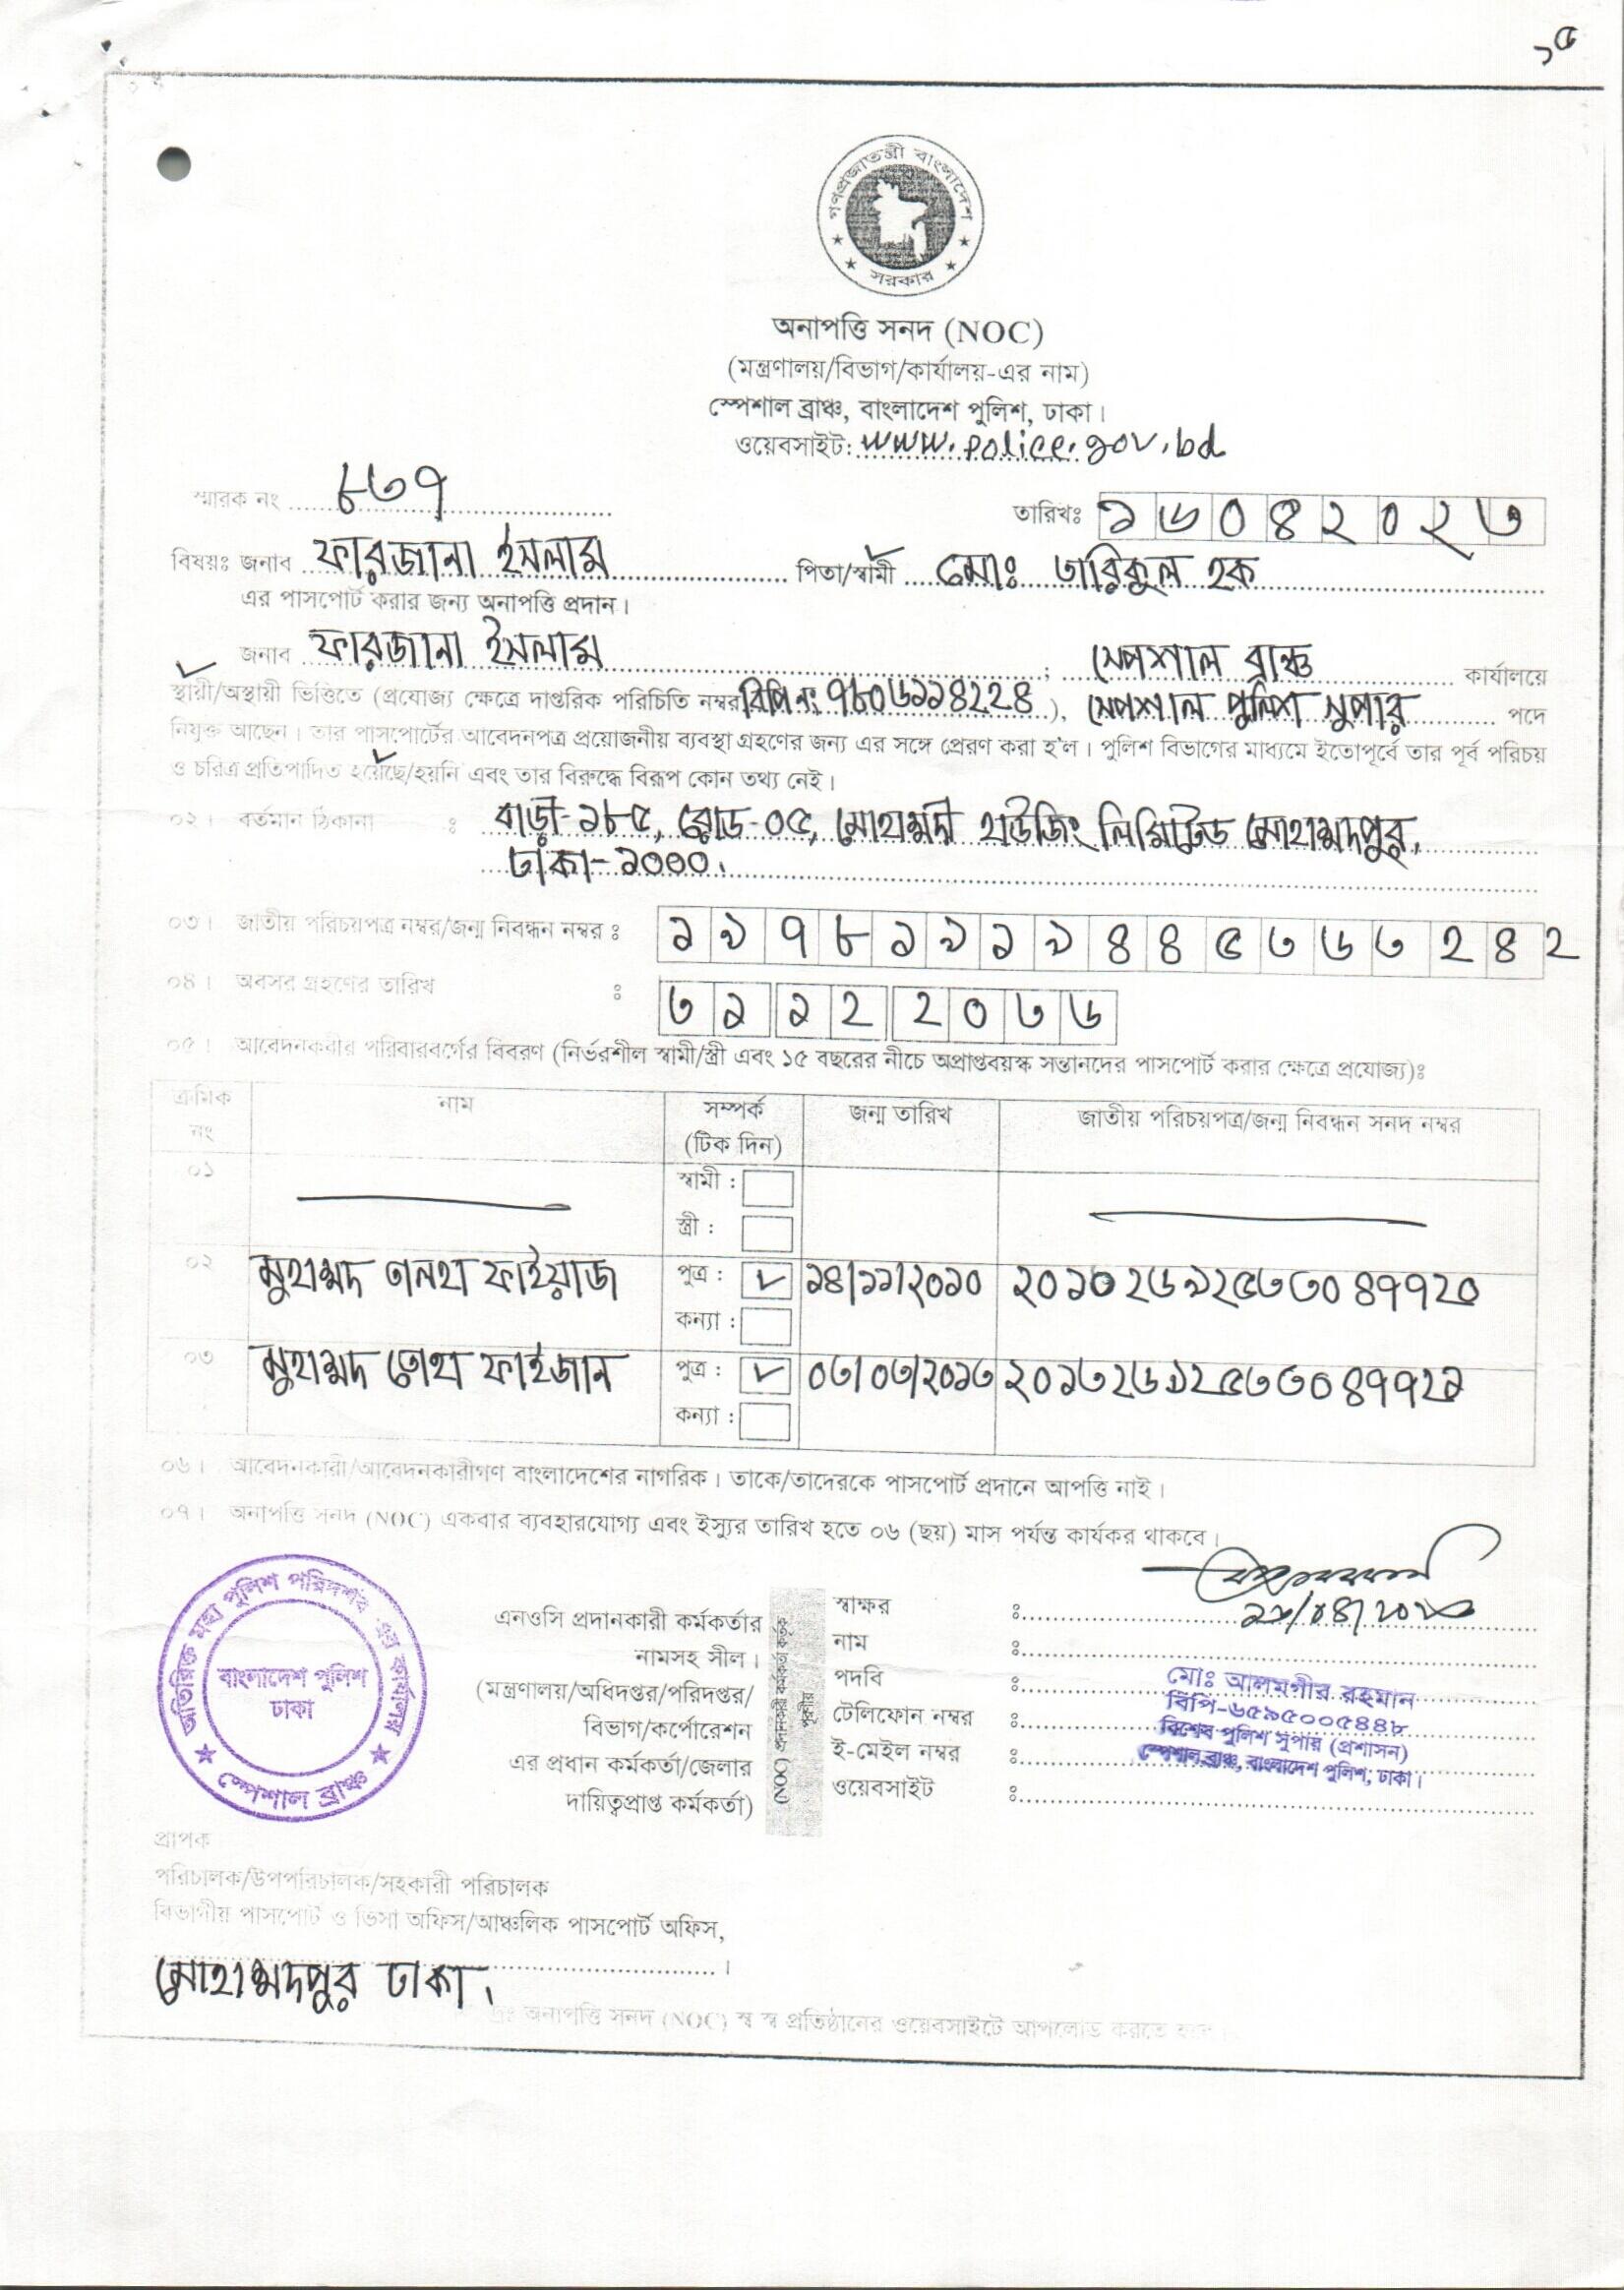 ১৫
গণপ্রজাতন্ত্রী বাংলাদেশ
সরকার
অনাপত্তি সনদ (NOC)
(মন্ত্রণালয়/বিভাগ/কার্যালয়-এর নাম)
স্পেশাল ব্রাঞ্চ, বাংলাদেশ পুলিশ, ঢাকা।
ওয়েবসাইট: www.police.gov.bd
স্মারক নং ৮৩৭ তারিখঃ ১৬০৪২০২৩
বিষয়ঃ জনাব ফারজানা ইসলাম পিতা/স্বামী মোঃ তারিকুল হক
এর পাসপোর্ট করার জন্য অনাপত্তি প্রদান।
জনাব ফারজানা ইসলাম ; স্পেশাল ব্রাঞ্চ কার্যালয়ে
স্থায়ী/অস্থায়ী ভিত্তিতে (প্রযোজ্য ক্ষেত্রে দাপ্তরিক পরিচিতি নম্বর বিপি নং ৭৮০৬১১৪২২৪), স্পেশাল পুলিশ সুপার পদে
নিযুক্ত আছেন। তার পাসপোর্টের আবেদনপত্র প্রয়োজনীয় ব্যবস্থা গ্রহণের জন্য এর সঙ্গে প্রেরণ করা হ'ল। পুলিশ বিভাগের মাধ্যমে ইতোপূর্বে তার পূর্ব পরিচয়
ও চরিত্র প্রতিপাদিত হয়েছে/হয়নি এবং তার বিরুদ্ধে বিরূপ কোন তথ্য নেই।
০২। বর্তমান ঠিকানা : বাড়ী-১৮৫, রোড-০৫, মোহাম্মদী হাউজিং লিমিটেড মোহাম্মদপুর,
ঢাকা-১০০০.
০৩। জাতীয় পরিচয়পত্র নম্বর/জন্ম নিবন্ধন নম্বর : ১৯৭৮১৯১৯৪৪৫৩৬৩২৪২
০৪। অবসর গ্রহণের তারিখ : ৩১১২২০৩৬
০৫। আবেদনকারীর পরিবারবর্গের বিবরণ (নির্ভরশীল স্বামী/স্ত্রী এবং ১৫ বছরের নীচে অপ্রাপ্তবয়স্ক সন্তানদের পাসপোর্ট করার ক্ষেত্রে প্রযোজ্য)ঃ
ক্রমিক নং নাম সম্পর্ক (টিক দিন) জন্ম তারিখ জাতীয় পরিচয়পত্র/জন্ম নিবন্ধন সনদ নম্বর
০১ স্বামী :
স্ত্রী :
০২ মুহাম্মদ তালহা ফাইয়াজ পুত্র : ১৪/১১/২০১০ ২০১০২৬৯২৫৩৩০৪৭৭২০
কন্যা :
০৩ মুহাম্মদ তোহা ফাইজান পুত্র : ০৩/০৩/২০১৩ ২০১৩২৬৯২৫৩৩০৪৭৭২১
কন্যা :
০৬। আবেদনকারী/আবেদনকারীগণ বাংলাদেশের নাগরিক। তাকে/তাদেরকে পাসপোর্ট প্রদানে আপত্তি নাই।
০৭। অনাপত্তি সনদ (NOC) একবার ব্যবহারযোগ্য এবং ইস্যুর তারিখ হতে ০৬ (ছয়) মাস পর্যন্ত কার্যকর থাকবে।
অতিরিক্ত মহা পুলিশ পরিদর্শক এর কার্যালয়
বাংলাদেশ পুলিশ
ঢাকা
স্পেশাল ব্রাঞ্চ
এনওসি প্রদানকারী কর্মকর্তার
নামসহ সীল।
(মন্ত্রণালয়/অধিদপ্তর/পরিদপ্তর/
বিভাগ/কর্পোরেশন
এর প্রধান কর্মকর্তা/জেলার
দায়িত্বপ্রাপ্ত কর্মকর্তা)
(NOC) প্রদানকারী কর্মকর্তা কর্তৃক
পূরণীয়
স্বাক্ষর :
নাম :
পদবি :
টেলিফোন নম্বর :
ই-মেইল নম্বর :
ওয়েবসাইট :
মোঃ আলমগীর রহমান
বিপি-৬৫৯৫০০৫৪৪৮
বিশেষ পুলিশ সুপার (প্রশাসন)
স্পেশাল ব্রাঞ্চ, বাংলাদেশ পুলিশ, ঢাকা।
প্রাপক
পরিচালক/উপপরিচালক/সহকারী পরিচালক
বিভাগীয় পাসপোর্ট ও ভিসা অফিস/আঞ্চলিক পাসপোর্ট অফিস,
মোহাম্মদপুর ঢাকা.
অনাপত্তি সনদ (NOC) স্ব স্ব প্রতিষ্ঠানের ওয়েবসাইটে আপলোড করতে হবে